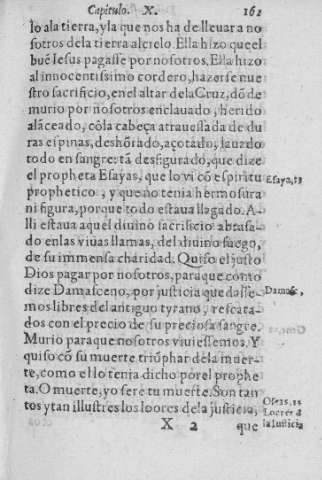 Capitulo. X. 162
lo ala tierra, y la que nos ha de lleuar a no
sotros dela tierra alcielo. Ella hizo que el
buē Iesus pagasse por nosotros. Ella hizo
al innocentissimo cordero, hazerse nue
stro sacrificio, en el altar dela Cruz, dōde
murio por nosotros enclauado, herido
alāceado, cōla cabeça atrauessada de du
ras espinas, deshōrado, açotado, lauado
todo en sangre: tā desfigurado, que dize
el propheta Esayas, que lo vi cō espiritu
prophetico, y que no tenia hermosura
ni figura, porque todo estaua llagado. A-
lli estaua aquel diuino sacrificio abrasa-
do en las viuas llamas, del diuino fuego,
de su immensa charidad. Quiso el justo
Dios pagar por nosotros, para que como
dize Damasceno, por justicia quedasse-
mos libres del antiguo tyrano, rescata-
dos con el precio de su preciosa sangre.
Murio paraque nosotros viuiessemos. Y
quiso cō su muerte triūphar dela muer-
te, como el lo tenia dicho por el prophe
ta. O muerte, yo sere tu muerte. Son tan
tos y tan illustres los loores de la justicia,
X 2 que
Esaya, 53
Damasc,
Osee. 13.
Loores d
la iusticia